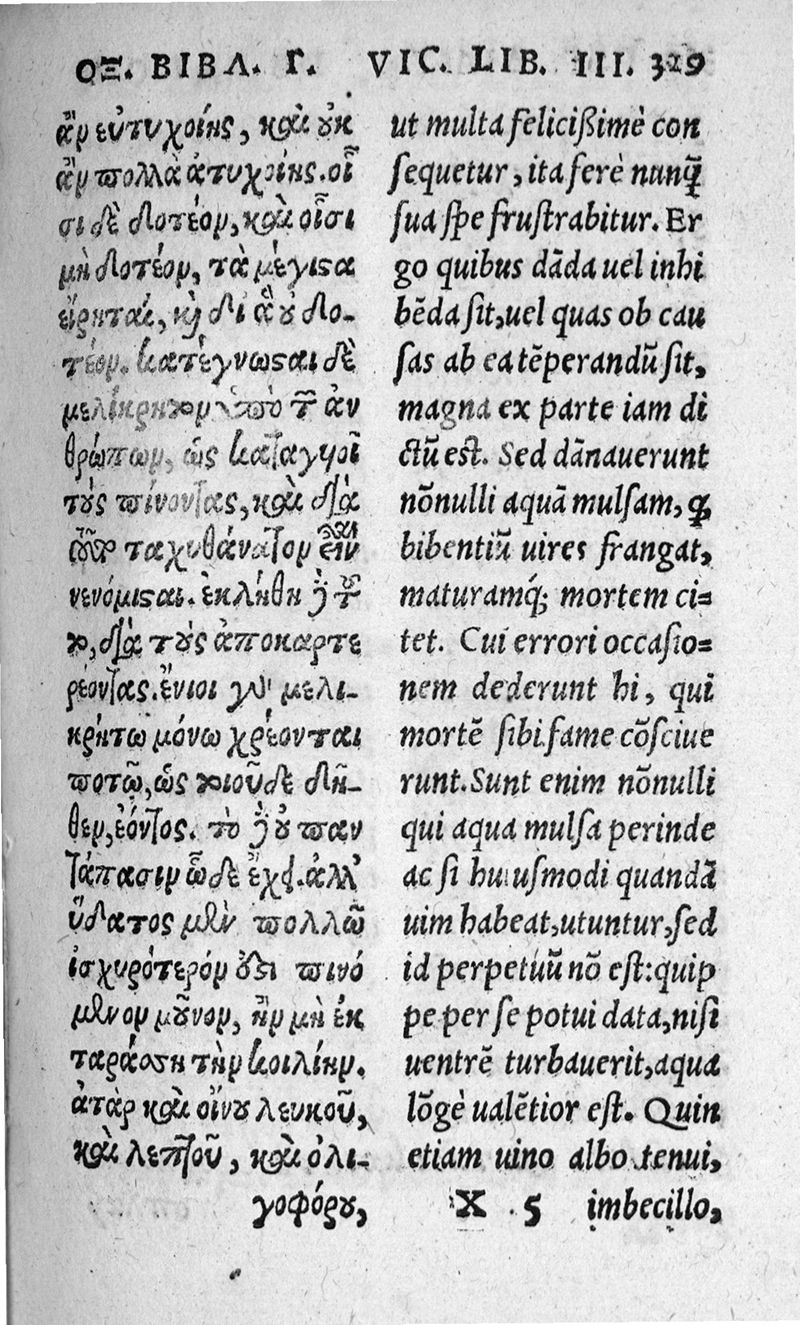 ΟΞ. ΒΙΒΛ. Γ. VIC. LIB. III. 329
ἂν εὐτυχοίης, καὶ οὐκ
ἂν πολλὰ ἀτυχοίης. οἷ
σι δὲ δοτέον, καὶ οἷσι
μὴ δοτέον, τὰ μέγιστα
εἴρηται, κὶ δι ἃ οὐ δο-
τέον. κατέγνωσται δὲ
μελίκρητον ὑπὸ τῶν ἀν
θρώπων, ὡς καταγυιοῖ
τοὺς πίνοντας, καὶ διὰ
τοῦτο ταχυθάνατον εἶναι
νενόμισται. ἐκλήθη δὲ τοῦ
το, διὰ τοὺς ἀποκαρτε
ρέοντας. ἔνιοι γὰρ μελι-
κρήτω μόνω χρέονται
ποτῶ, ὡς τοιοῦδε δῆ-
θεν, ἐόντος. τὸ δὲ οὐ παν
τάπασιν ὧδε ἔχει. ἀλλ'
ὕδατος μὲν πολλῶ
ἰσχυρότερόν ἐστι πινό
μενον μοῦνον, ἢν μὴ ἐκ
ταράσση τὴν κοιλίην.
ἀτὰρ καὶ οἴνου λευκοῦ,
καὶ λεπτοῦ, καὶ ὀλι-
γοφόρου,
ut multa felicissimè con
sequetur, ita ferè nunq̃
sua spe frustrabitur. Er
go quibus dāda uel inhi
bēda sit, uel quas ob cau
sas ab ea tēperandũ sit,
magna ex parte iam di
ctũ est. Sed dānauerunt
nōnulli aquā mulsam, q̃
bibentiũ uires frangat,
maturamq́; mortem ci=
tet. Cui errori occasio=
nem dederunt hi, qui
mortē sibi fame cōsciue
runt. Sunt enim nōnulli
qui aqua mulsa perinde
ac si huiusmodi quandā
uim habeat, utuntur, sed
id perpetuũ nō est: quip
pe per se potui data, nisi
uentrē turbauerit, aqua
lōgè ualētior est. Quin
etiam uino albo tenui,
X 5 imbecillo,